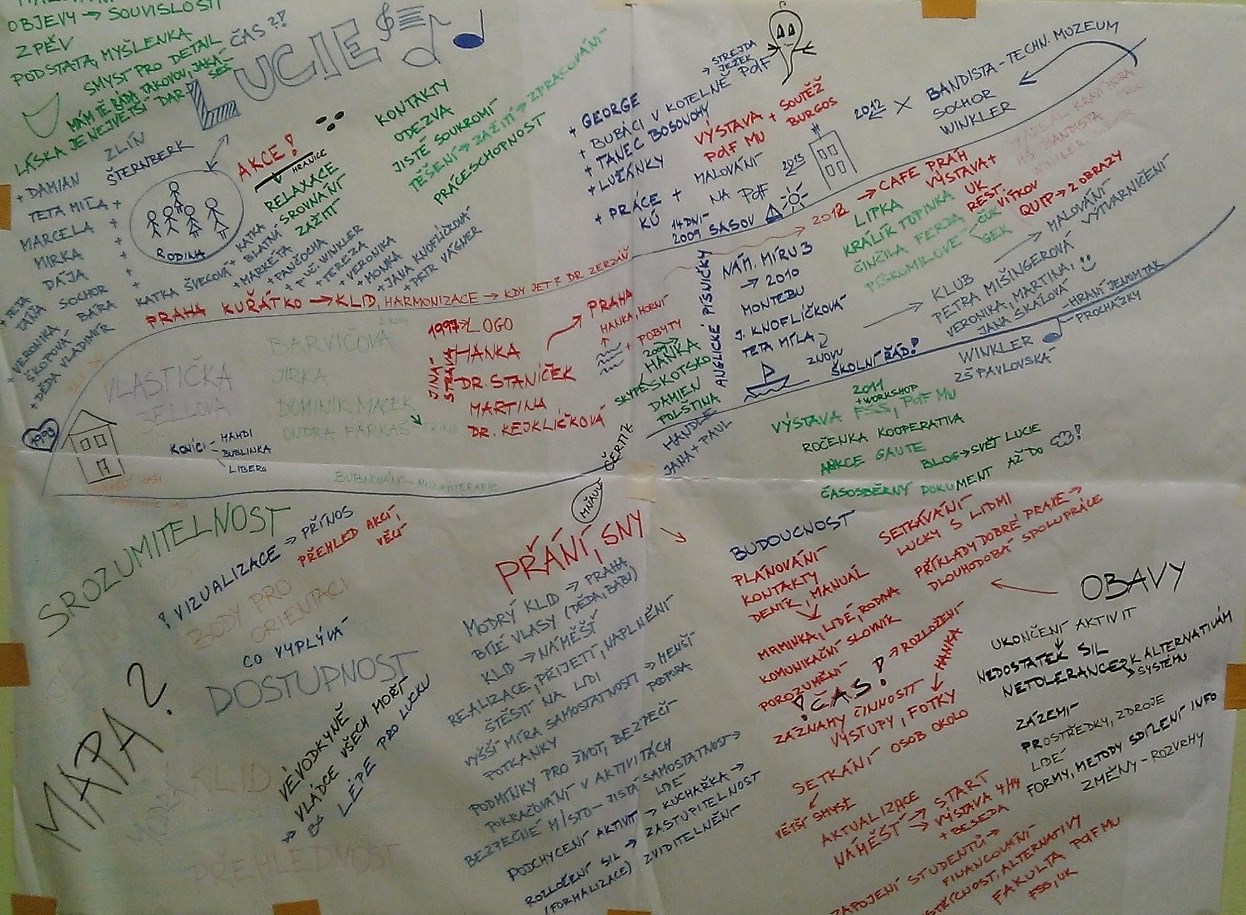 OBJEVY → SOUVISLOSTI
ZPĚV
PODSTATA, MYŠLENKA
SMYSL PRO DETAIL
MÁM TĚ RÁDA TAKOVOU, JAKÁ SEŠ
LÁSKA JE NEJVĚTŠÍ DAR
ČAS?!
LUCIE
ZLÍN
ŠTERNBERK
+ DAMIAN
TETA MÍLA +
MARCELA +
MIRKA +
DÁJA +
SOCHOR
BÁRA
+ TETA TÁŇA
+ VERONIKA ŠKOPOVÁ
+ DĚDA VLADIMÍR
RODINA
AKCE!
HRANICE
RELAXACE
SROVNÁNÍ
ZAŽITÍ
KONTAKTY
ODEZVA
JISTÉ SOUKROMÍ
TĚŠENÍ → ZAŽITÍ → ZPRACOVÁNÍ
PRÁCESCHOPNOST
KATKA ŠVECOVÁ
+ KATKA BLATNÁ
+ MARKETA
+ PANČOCHA
+ P.UČ. WINKLER
+ TEREZA
+ VERONIKA
+ MONKA
+ JANA KNOFLÍČKOVÁ
+ PETR VÁGNER
PRAHA KUŘÁTKO → KLID, HARMONIZACE → KDY JET ? DR. ZERZÁŇ
STREJDA JEŽEK
+ GEORGE
+ BUBÁCI V KOTELNĚ PdF
+ TANEC BOSONOHY
+ LUŽÁNKY
+ PRÁCE +
KÚ
VÝSTAVA + SOUTĚŽ
PdF MU BURGOS
MALOVÁNÍ
NA PdF
2013
14 DNÍ -
2009 SASOV
2012 × BANDISTA - TECHN. MUZEUM
SOCHOR
WINKLER
2012 → CAFE PRÁH
VÝSTAVA +
UK
REST. VÍTKOV
QUIP → 2 OBRAZY
LIPKA
KRÁLÍK ŤUPINKA
ČINČILA FERDA
PÍSKOMILOVÉ - ČUK
GEK
NÁM. MÍRU 3
→ 2010
MONTEBU
J. KNOFLÍČKOVÁ
TETA MÍLA
ZNOVU
ANGLICKÉ PÍSNIČKY
KLUB → MALOVÁNÍ
VÝTVARNIČENÍ
PETRA MIŠINGEROVÁ
VERONIKA, MARTINA,
JANA SKALOVÁ
HRANÍ JENOM TAK
PROCHÁZKY
WINKLER
ZŠ PAVLOVSKÁ
ŠKOLNÍ ŘÁD!
1993
VLASTIČKA
ZELLOVÁ
BARVIČOVÁ
JIRKA
DOMINIK MACEK
ONDRA FARKAŠ
KONÍCI - MANDI
BUBLINKA
LIBERO
BUBNOVÁNÍ - MUZIKOTERAPIE
1997 → LOGO
JINÁ STRAVA
HANKA
DR STANÍČEK
MARTINA
DR. KEJKLÍČKOVÁ
PRAHA
HANKA, HORNÍ
+ POBYTY
2009 →
HANKA
SKYPE SKOTSKO
DAMIEN
POLŠTINA
HANDLE
JANA + PAUL
ČERTÍK
MŇAU
VÝSTAVA 2011
+ WORKSHOP
FSS, PdF MU
ROČENKA KOOPERATIVA
AKCE GAUTE
BLOG → SVĚT LUCIE
ČASOSBĚRNÝ DOKUMENT AŽ DO !
SROZUMITELNOST
! VIZUALIZACE → PŘÍNOS
PŘEHLED AKCÍ,
VĚCÍ
BODY PRO
ORIENTACI
CO VYPLÝVÁ
DOSTUPNOST
MAPA?
VÉVODKYNĚ
VLÁDCE VŠECH MOŘÍ
LÉPE PRO LUCKU
MODRÝ KLID
PŘEHLEDNOST
PŘÁNÍ, SNY
MODRÝ KLID → PRAHA
BÍLÉ VLASY (DĚDA, BABI)
KLID → NÁMĚŠŤ
REALIZACE, PŘIJETÍ, NAPLNĚNÍ
ŠTĚSTÍ NA LIDI
VYŠŠÍ MÍRA SAMOSTATNOSTI → MENŠÍ PODPORA
POTKÁNKY
PODMÍNKY PRO ŽIVOT, BEZPEČÍ
POKRAČOVÁNÍ V AKTIVITÁCH
BEZPEČNÉ MÍSTO - JISTÁ SAMOSTATNOST →
LIDÉ
PODCHYCENÍ AKTIVIT → KUCHAŘKA →
ZASTUPITELNOST
ROZLOŽENÍ SIL → ZVIDITELNĚNÍ
(FORMALIZACE)
BUDOUCNOST
PLÁNOVÁNÍ
KONTAKTY
DENÍK, MANUÁL
MAMINKA, LIDÉ, RODINA
KOMUNIKAČNÍ SLOVNÍK
POROZUMĚNÍ
!ČAS! → ROZLOŽENÍ
HANKA
ZÁZNAMY ČINNOSTÍ
VÝSTUPY, FOTKY
SETKÁNÍ OSOB OKOLO
VĚTŠÍ SMYSL
AKTUALIZACE
NÁMĚŠŤ → START
VÝSTAVA 4/14
+ BESEDA
ZAPOJENÍ STUDENTŮ →
FINANCOVÁNÍ -
ALTERNATIVY
FAKULTA PdF MU
FSS, UK
SETKÁVÁNÍ
LUCKY S LIDMI
PŘÍKLADY DOBRÉ PRAXE →
DLOUHODOBÁ SPOLUPRÁCE
OBAVY
UKONČENÍ AKTIVIT
NEDOSTATEK SIL
NETOLERANCE → K ALTERNATIVÁM
SYSTÉMU
ZÁZEMÍ -
PROSTŘEDKY, ZDROJE
LIDÉ
FORMY, METODY SDÍLENÍ INFO
ZMĚNY - ROZVRHY